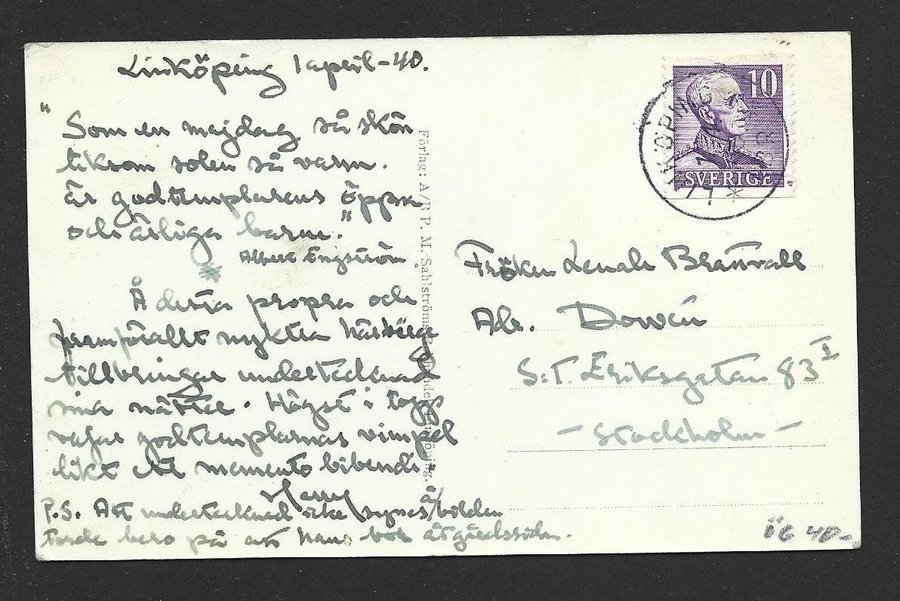 Linköping 1 april-40.
"Som en majdag så skön
liksom solen så varm.
Är godtemplarens öppna
och ärliga barm."
Albert Engström
Å detta propra och
framförallt nyktra härbärge
tillbringar undertecknad
sina nätter. Högst i topp
vajar godtemplarnas vimpel
likt ett memento bibendi.
Harry
P.S. Att undertecknad icke synes å bilden
torde bero på att hans bor åt gårdssidan.
Förlag: A/B P. M. Sahlströms
10
SVERIGE
KÖPING
Fröken Brattvall
Adr. Dowén
S:T. Eriksgatan 83 I
- Stockholm -
ÖG 40-